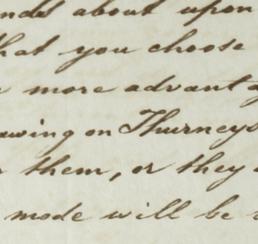 ands about upon
that you choose
more advantag
awing on Thurneys
them, or they
mode will be